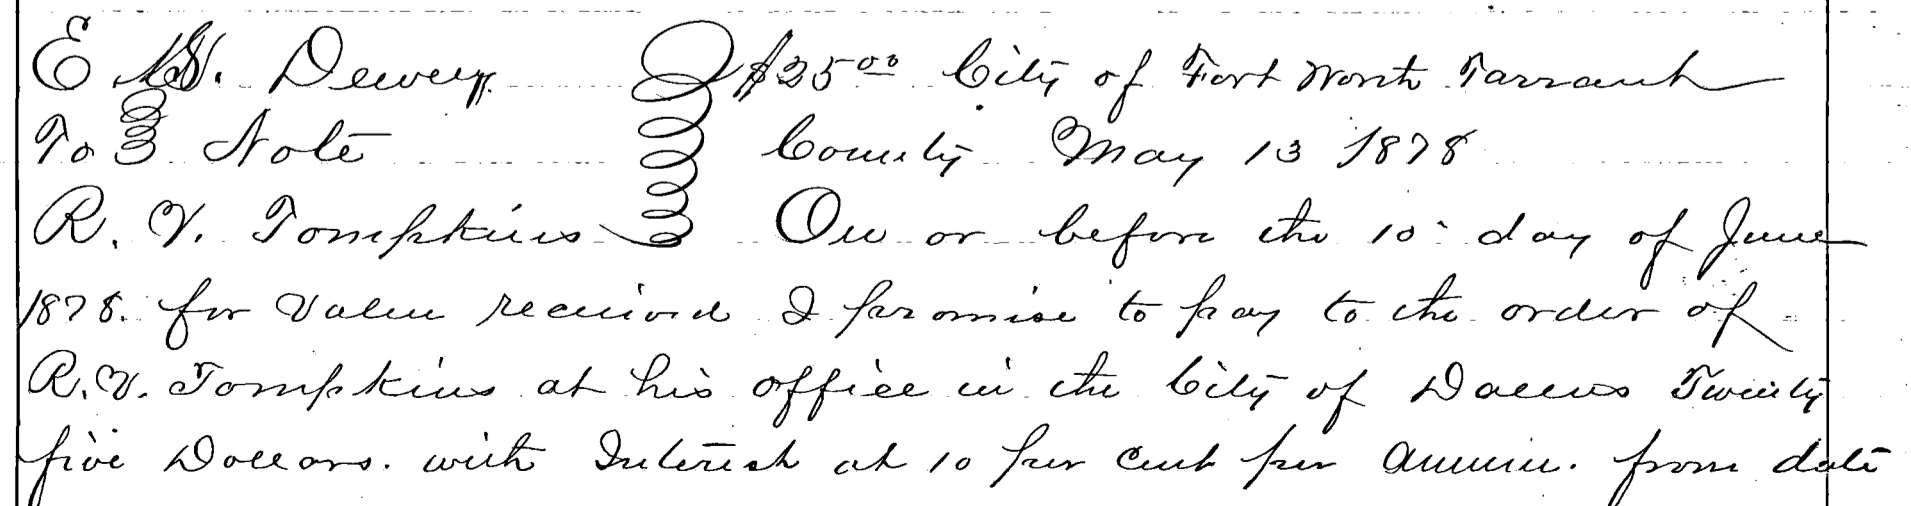 E W. Dewey $25 00 City of Fort Worth Tarrant
To Note County May 13 1878
R. V. Tompkins On or before the 10 day of June
1878. for Value received I promise to pay to the order of
R. V. Tompkins at his office in the City of Dallas Twenty
five Dollars. with Interest at 10 per cent per annum. from date